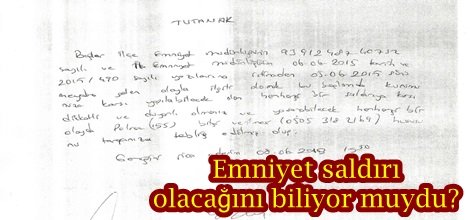 TUTANAK
Bağlar İlçe Emniyet müdürlüğünün 93912487 40732
sayılı ve İl Emniyet müdürlüğünün 06.06.2015 tarih ve
2015/490 sayılı yazılarına 05.06.2015 günü
meydana gelen olayla ilgili olarak bu bağlamda kurumu
nuza karşı yapılabilecek olan herhangi bir saldırıya karşı
dikkatli ve duyarlı olmanız ve yapılabilecek herhangi bir
olayda Polise (155) bilgi verilmesi (0505 318 2169) husu
nu tarafınıza tebliğ edilmiş olup.
Gereğini rica ederim 08.06.2015 1930
Emniyet saldırı
olacağını biliyor muydu?